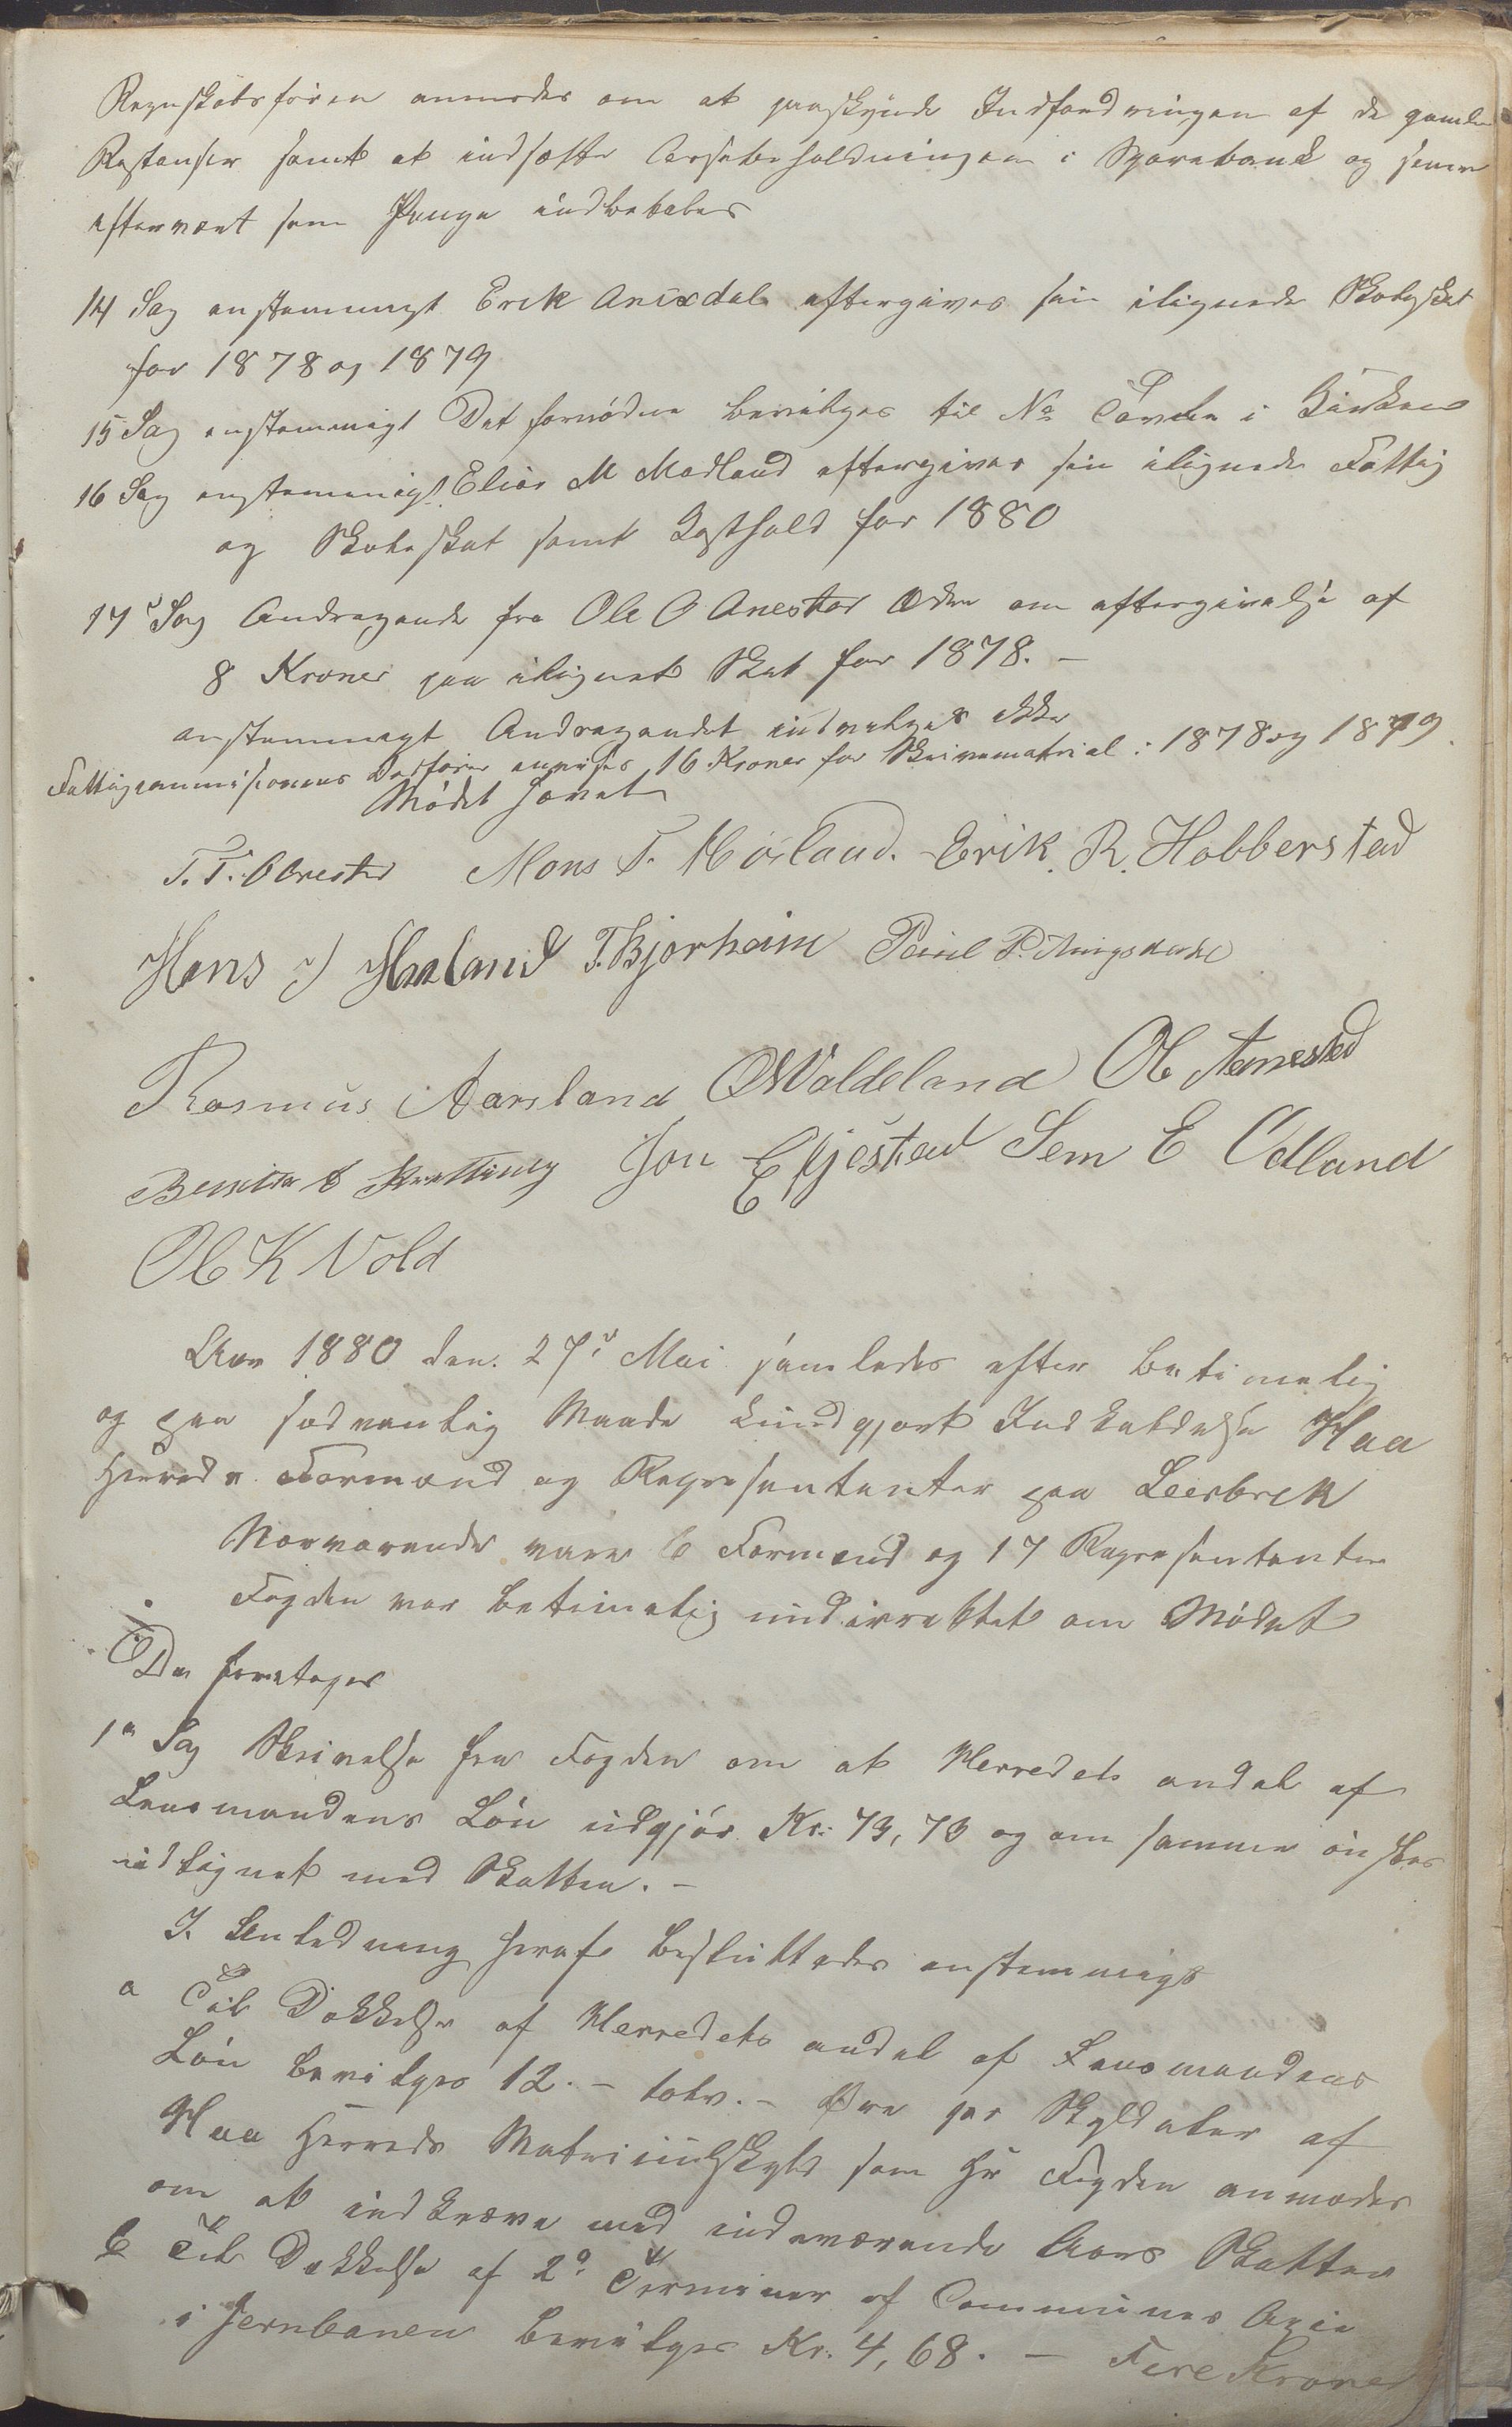 Regnskabsføren anmodes om at paaskynde Indfordringen af de gamle
Restanser samt at indsætte Casebeholdningen i Sparebank og senere
eftervært som Penge indbetales
14 Sag enstemmigt Erik Anixdal eftergives sin ilignede Skoleskat
for 1878 og 1879
15 Sag enstemmigt Det fornødne bevilges til No Tavle i Kirken
16 Sag enstemmigt Elias M Madland eftergives sin ilignede Fattig
og Skoleskat samt Kosthold for 1880
17d Sag Andragende fra Ole O Anestad om eftergivelse af
8 Kroner paa ilignet Skat for 1878. –
enstemmigt Andragendet indvilges ikke
Fattigcommisionens Ordfører anvises 16 Kroner for Skrivematrial i 1878 og 1879.
Mødet hævet
T. T. Obrestad Mons T. Høiland. Erik. R. Hobberstad
Hans J Haaland T. Bjorheim Paul P.
Rasmus Aarsland O Waldeland Ole Anestad
Jon E Fjestad Sem E Odland
Ole K Vold
Aar 1880 den. 27de Mai samledes efter betimelig
og paa sedvanlig Maade kundgjort Indkaldelse Haa
Herreds Formænd og Representanter paa Leerbrek
Nærværende vare 6 Formænd og 17 Representanter
Fogden var betimelig underrettet om Mødet
Da foretoges
1e Sag Skrivelse fra Fogden om at Herredets andel af
Lensmandens Løn udgjør Kr: 73,73 og om samme ønskes
udlignet med Skatten. –
I. Anledning heraf besluttedes enstemmigt
a Til Dækkelse af Herredets andel af Lensmandens
Løn bevilges 12. – tolv. – Øre per Skyldaler af
Haa Herreds Matriculskyld som Hr Fogden anmodes
om at indkræve med indeværende Aars Skatter
b Til Dækkelse af 2den Terminer af Communes Axie
i Jernbanen bevilges Kr. 4,68. – Fire Kroner